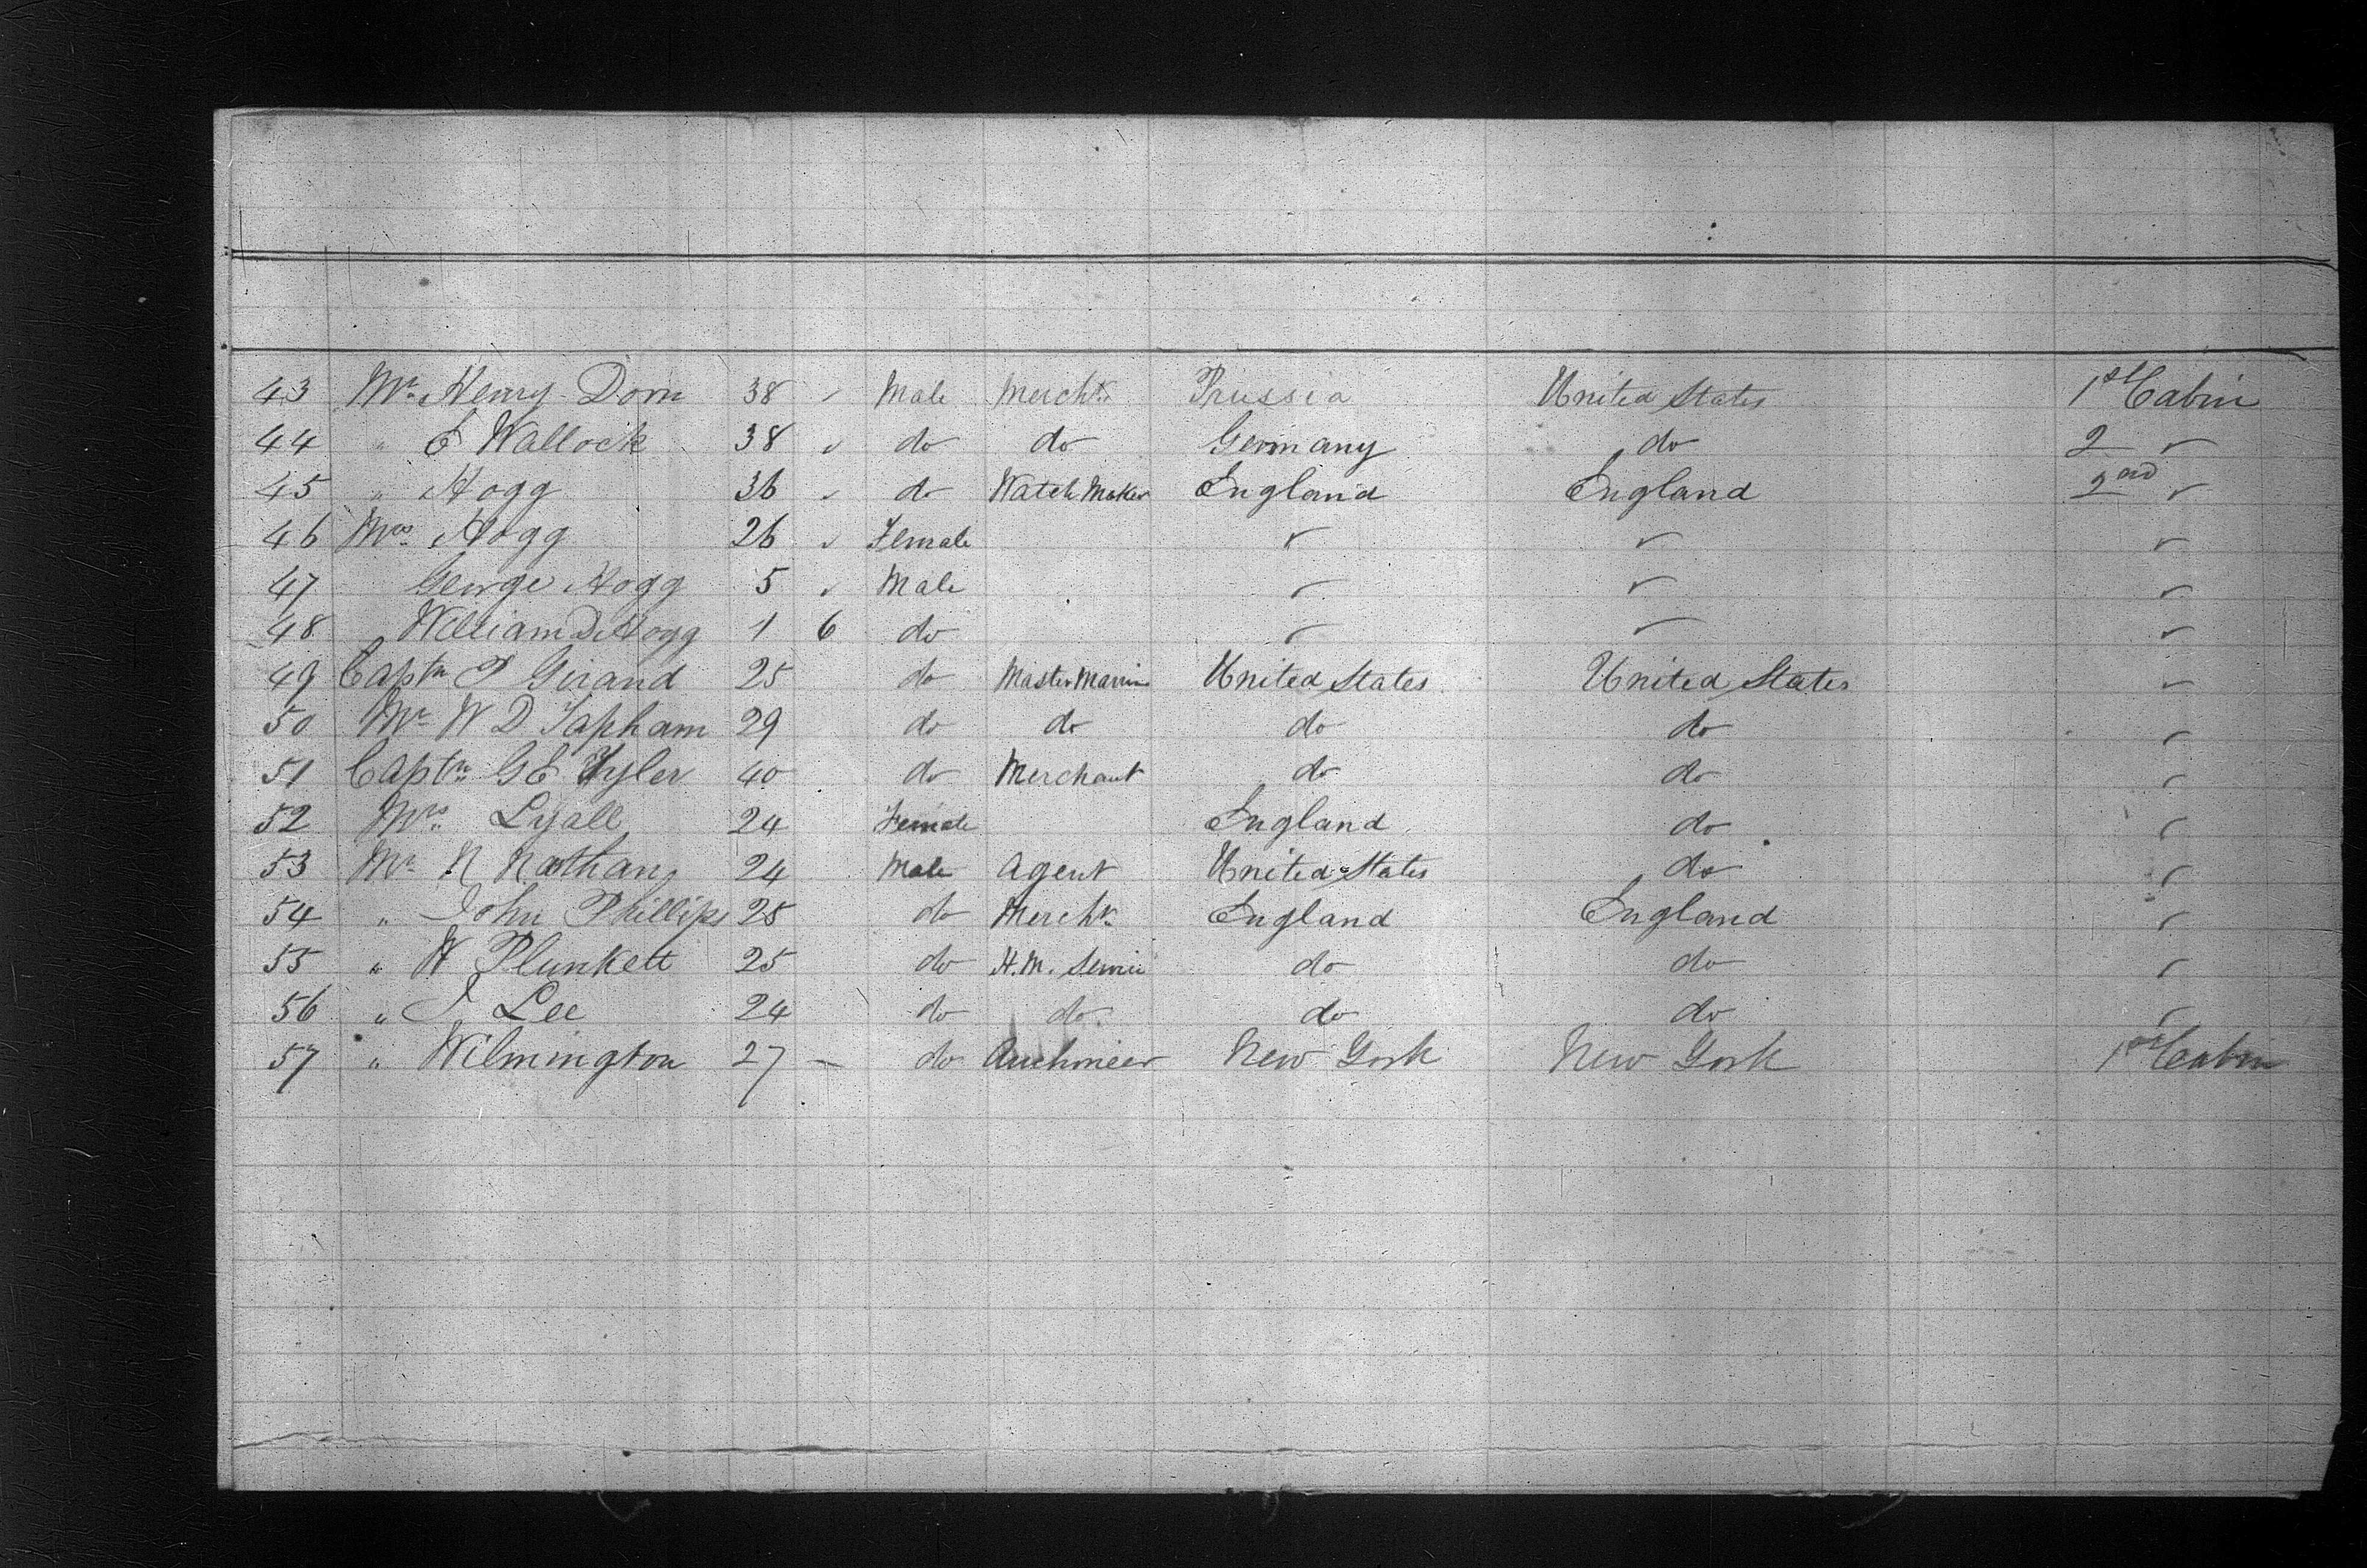 43 Mr. Henry Dorn 38 " Male Mercht. Prussia United States 1st Cabin
44 " E Wallock 38 " do do Germany do 2 "
45 " Hogg 36 " do Watch Maker England England 2nd "
46 Mrs. Hogg 26 " Female " " "
47 George Hogg 5 " Male " " "
48 William D Hogg 1 6 do " " "
49 Captn P Girand 25 do Master Marin United States United States "
50 Mr. W D Tapham 29 do do do do "
51 Captn. G E Tyler 40 do Merchant do do "
52 Mrs. Lyall 24 Female England do "
53 Mr. N Nathan 24 Male Agent United States do "
54 " John Phillips 25 do Mercht. England England "
55 " W Plunkett 25 do H.M. Servic do do "
56 " J Lee 24 do do do do "
57 " Wilmington 27 — do Auctioneer New York New York 1st Cabin